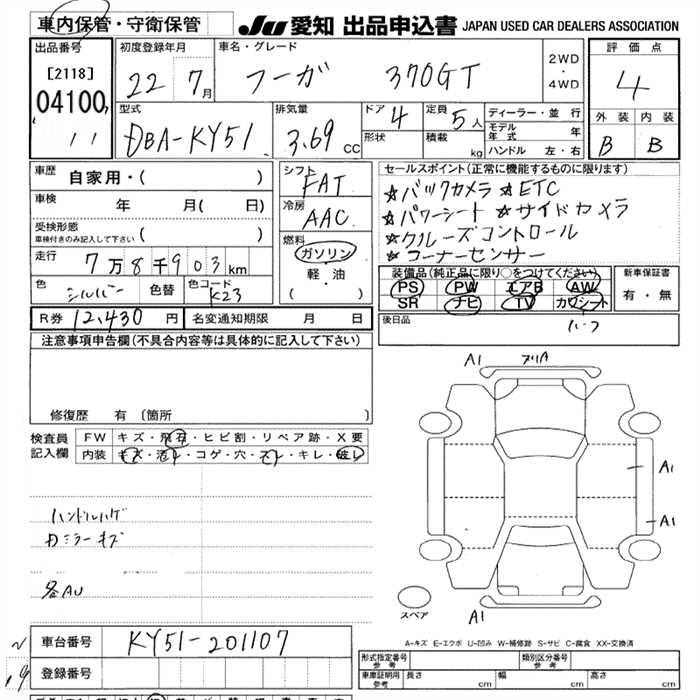 車内保管・守衛保管
JU 愛知 出品申込書 JAPAN USED CAR DEALERS ASSOCIATION
出品番号
[2118]
04100
11
初度登録年月
22 7月
車名・グレード
フーガ 370GT
2WD
・
4WD
評価点
4
外装 内装
B B
型式
DBA-KY51
排気量
3.69 CC
ドア 4
形状
定員 5人
積載 kg
ディーラー・並行
モデル年式 年
ハンドル 左・右
車歴 自家用・( )
車検 年 月( 日)
受検形態
車検付きのみ記入して下さい ( )
走行 7万8千903km
色 シルバー 色替 色コード K23
シフト FAT
冷房 AAC
燃料
ガソリン
・
軽・油
( )
セールスポイント(正常に機能するものに限ります)
☆バックカメラ ☆ETC
☆パワーシート ☆サイドカメラ
☆クルーズコントロール
☆コーナーセンサー
装備品(純正品に限り○をつけてください)
PS PW エアB AW
SR ナビ TV カワシート
新車保証書
有・無
R券 12,430円 名変通知期限 月 日
後日品
注意事項申告欄(不具合内容等は具体的に記入して下さい)
修復歴 有 (箇所 )
検査員
記入欄
FW キズ・飛石・ヒビ割・リペア跡・X要
内装 キズ・汚れ・コゲ・穴・スレ・キレ・破レ
ハンドルハゲ
カミラーキズ
各AU
A1
A1
A1
A1
スペア
A-キズ E-エクボ U-凹み W-補修跡 S-サビ C-腐食 XX-交換済
車台番号 KY51-201107
登録番号
形式指定番号
参考
類別区分番号
参考
車庫証明用
参考
長さ cm 幅 cm 高さ cm